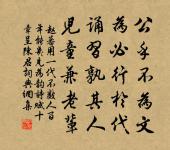 公乎不為文
為必行於代
誦習孰其人
兒童兼老輩
趙蕃用一代不數人百
年能幾見為韻詩賦十
章呈陳君詞典網集